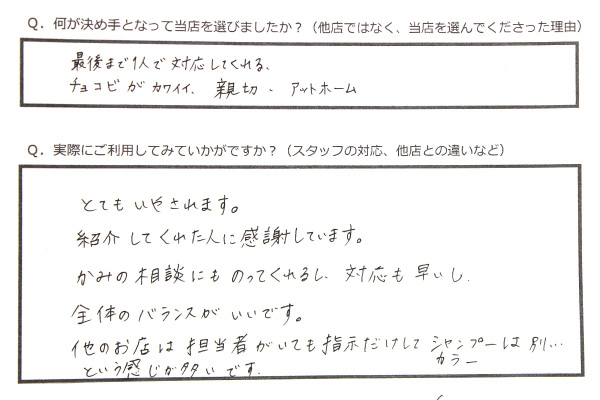 Q．何が決め手となって当店を選びましたか？（他店ではなく、当店を選んでくださった理由）
最後まで1人で対応してくれる、
チョコビがカワイイ、親切、アットホーム
Q．実際にご利用してみていかがですか？（スタッフの対応、他店との違いなど）
とてもいやされます。
紹介してくれた人に感謝しています。
かみの相談にものってくれるし、対応も早いし、
全体のバランスがいいです。
他のお店は担当者がいても指示だけしてシャンプーは別…
カラー
という感じが多いです。